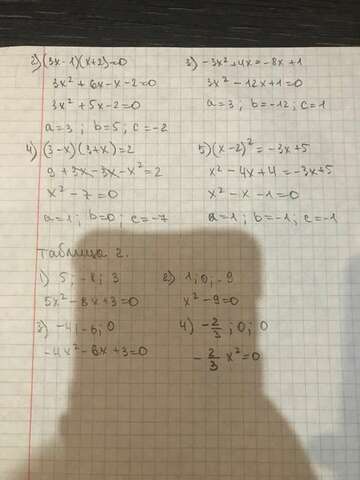 2) (3x-1)(x+2)=0
3x²+6x-x-2=0
3x²+5x-2=0
a=3; b=5; c=-2
3) -3x²+4x=-8x+1
3x²-12x+1=0
a=3; b=-12; c=1
4) (3-x)(3+x)=2
9+3x-3x-x²=2
x²-7=0
a=1; b=0; c=-7
5) (x-2)²=-3x+5
x²-4x+4=-3x+5
x²-x-1=0
a=1; b=-1; c=-1
Таблица 2.
1) 5; -8; 3
5x²-8x+3=0
2) 1; 0; -9
x²-9=0
3) -4; -6; 0
-4x²-6x+3=0
4) -2/3; 0; 0
-2/3 x²=0